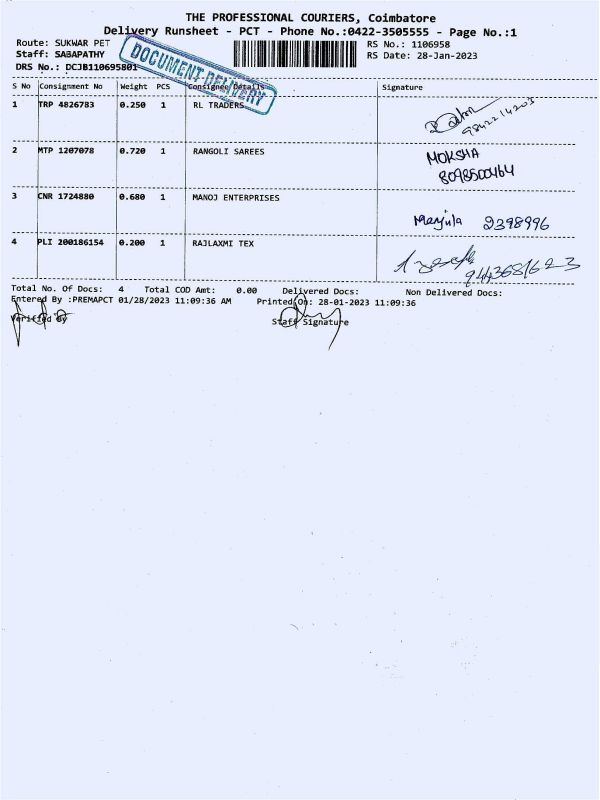 THE PROFESSIONAL COURIERS, Coimbatore
Delivery Runsheet - PCT - Phone No.:0422-3505555 - Page No.:1
Route: SUKWAR PET RS No.: 1106958
Staff: SABAPATHY RS Date: 28-Jan-2023
DRS No.: DCJB110695801
DOCUMENT DELIVERY
S No Consignment No Weight PCS Consignee Details Signature
1 TRP 4826783 0.250 1 RL TRADERS
9842214203
2 MTP 1207078 0.720 1 RANGOLI SAREES MOKSHA
8098500464
3 CNR 1724880 0.680 1 MANOJ ENTERPRISES
Manjula 2398996
4 PLI 200186154 0.200 1 RAJLAXMI TEX
Total No. Of Docs: 4 Total COD Amt: 0.00 Delivered Docs: Non Delivered Docs:
Entered By :PREMAPCT 01/28/2023 11:09:36 AM Printed On: 28-01-2023 11:09:36
Verified By Staff Signature